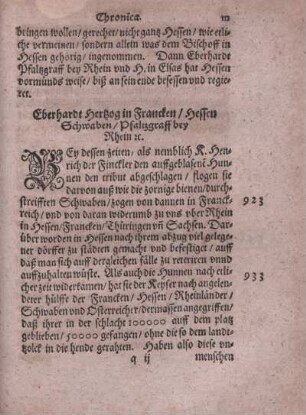 Chronica.
bringen wollen / gerechet / nicht gantz Hessen / wie etli-
che vermeinen / sondern allein was dem Bischoff in
Hessen gehörig / ingenommen. Dann Eberharde
Pfaltzgraff bey Rhein vnd H. in Elsas hat Hessen
vormünds weise / biß an sein ende besessen vnd regie-
ret.
Eberhardt Hertzog in Francken / Hessen
Schwaben / Pfaltzgraff bey
Rhein ꝛc.
BEy dessen zeiten / als nemblich K. Hen-
rich der Finckler den auffgeblasenē Hun-
nen den tribut abgeschlagen / flogen sie
darvon auß wie die zornige bienen / durch-
streifften Schwaben / zogen von dannen in Franck- 923
reich / vnd von daran widerumb zu vns vber Rhein
in Hessen / Francken / Thüringen vñ Sachsen. Dar-
über worden in Hessen nach ihrem abzug viel gelege-
ner dörffer zu städten gemacht vnd befestiget / auff
daß man sich auff dergleichen fälle zu reteriren vnnd
auffzuhalten wüste. Als auch die Hunnen nach etli-
cher zeit widerkamen / hat sie der Keyser nach angelen- 933
deter hülffe der Francken / Hessen / Rheinländer /
Schwaben vnd Osterreicher / dermassen angegriffen /
daß ihrer in der schlacht 100000 auff dem platz
geblieben / 50000 gefangen / ohne die so dem landt-
tzolck in die hende gerahten. Haben also diese vn-
q ij menschen